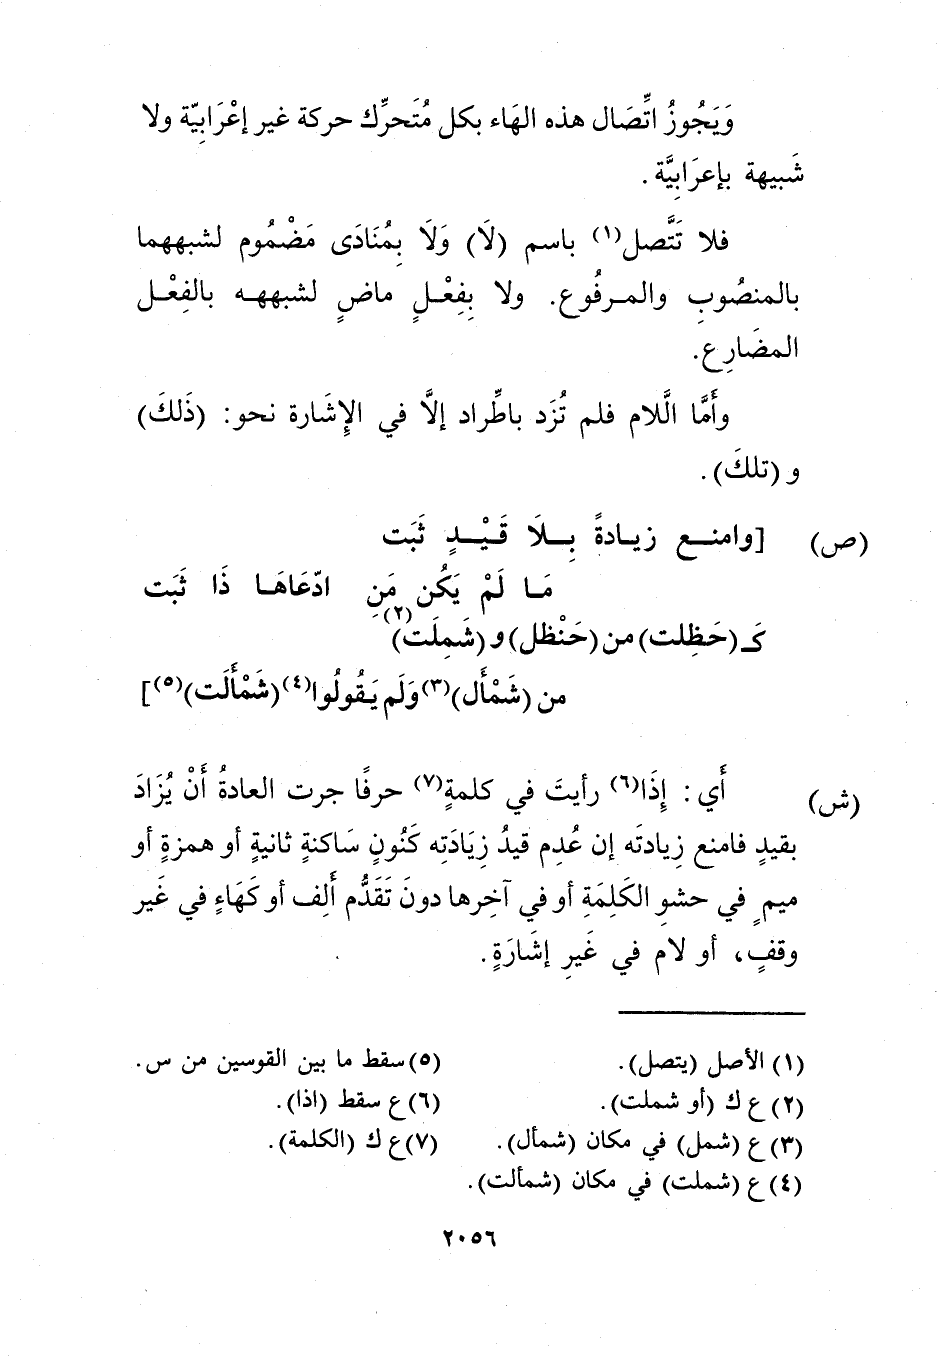 وَيَجُوزُ اتِّصَال هذه الهَاء بكل مُتَحرِّك حركة غير إعْرَابِيّة ولا
شَبيهة بإعرَابِيَّة .
فلا تَتَّصل(١) باسم (لَا) وَلَا بِمُنَادَى مَضْمُوم لشبههما
بالمنصُوبِ والمرفُوع. ولا بِفِعْلٍ ماضٍ لشبهه بالفِعْل
المضَارِع.
وأَمَّا الَّلام فلم تُزَد باطِّراد إلَّا في الإِشَارة نحو: (ذَلكَ)
و (تلكَ) .
(ص) [وامنع زيادةً بِلَا قَيْدٍ ثَبَت
مَا لَمْ يَكُن مَنِ ادّعَاهَا ذَا ثَبَت
كَـ (حَظِلت) من (حَنْظل) و (شَمِلَت)(٢)
من (شَمْأَل)(٣) وَلَم يَقُولُوا(٤) (شَمْأَلَت)(٥)]
(ش) أَي : إِذَا(٦) رأيتَ في كلمةٍ(٧) حرفًا جرت العادةُ أَنْ يُزَادَ
بقيدٍ فامنع زِيادتَه إن عُدِم قيدُ زِيَادَتِه كَنُونٍ سَاكنةٍ ثانيةٍ أو همزةٍ أو
ميمٍ في حشوِ الكَلِمَةِ أو في آخِرها دونَ تَقَدُّم أَلِف أو كَهَاءٍ في غَير
وقفٍ، أو لام في غَيرِ إشَارَةٍ.
(١) الأصل (يتصل).
(٢) ع ك (أو شملت).
(٣) ع (شمل) في مكان (شمأل).
(٤) ع (شملت) في مكان (شمألت).
(٥) سقط ما بين القوسين من س.
(٦) ع سقط (اذا).
(٧) ع ك (الكلمة).
٢٠٥٦